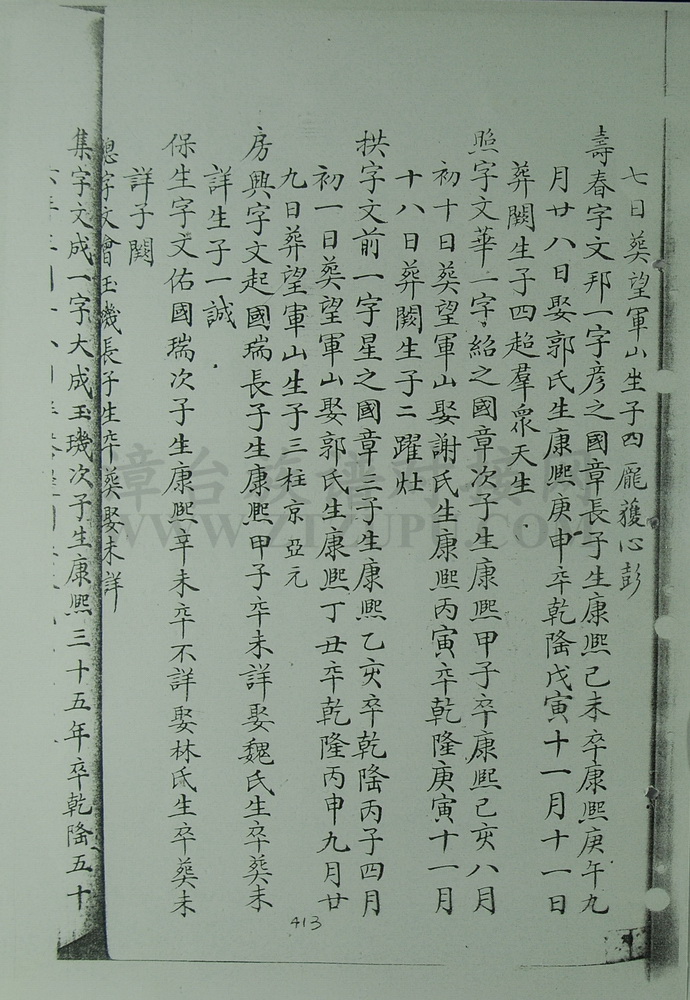 七日葬望軍山生子四龐獲心彭
壽春字文邦一字彥之國章長子生康熙己未卒康熙庚午九
月廿八日娶郭氏生康熙庚申卒乾隆戊寅十一月十一日
葬闕生子四超羣眾天生
照字文華一字紹之國章次子生康熙甲子卒康熙己亥八月
初十日葬望軍山娶謝氏生康熙丙寅卒乾隆庚寅十一月
十八日葬闕生子二躍灶
拱字文前一字星之國章三子生康熙乙亥卒乾隆丙子四月
初一日葬望軍山娶郭氏生康熙丁丑卒乾隆丙申九月廿
九日葬望軍山生子三柱京亞元
房興字文起國瑞長子生康熙甲子卒未詳娶魏氏生卒葬未
詳生子一誠
保生字文佑國瑞次子生康熙辛未卒不詳娶林氏生卒葬未
詳子闕
總字文會玉璣長子生卒葬娶未詳
集字文成一字大成玉璣次子生康熙三十五年卒乾隆五十
413
WWW.ZTZUPU.COM